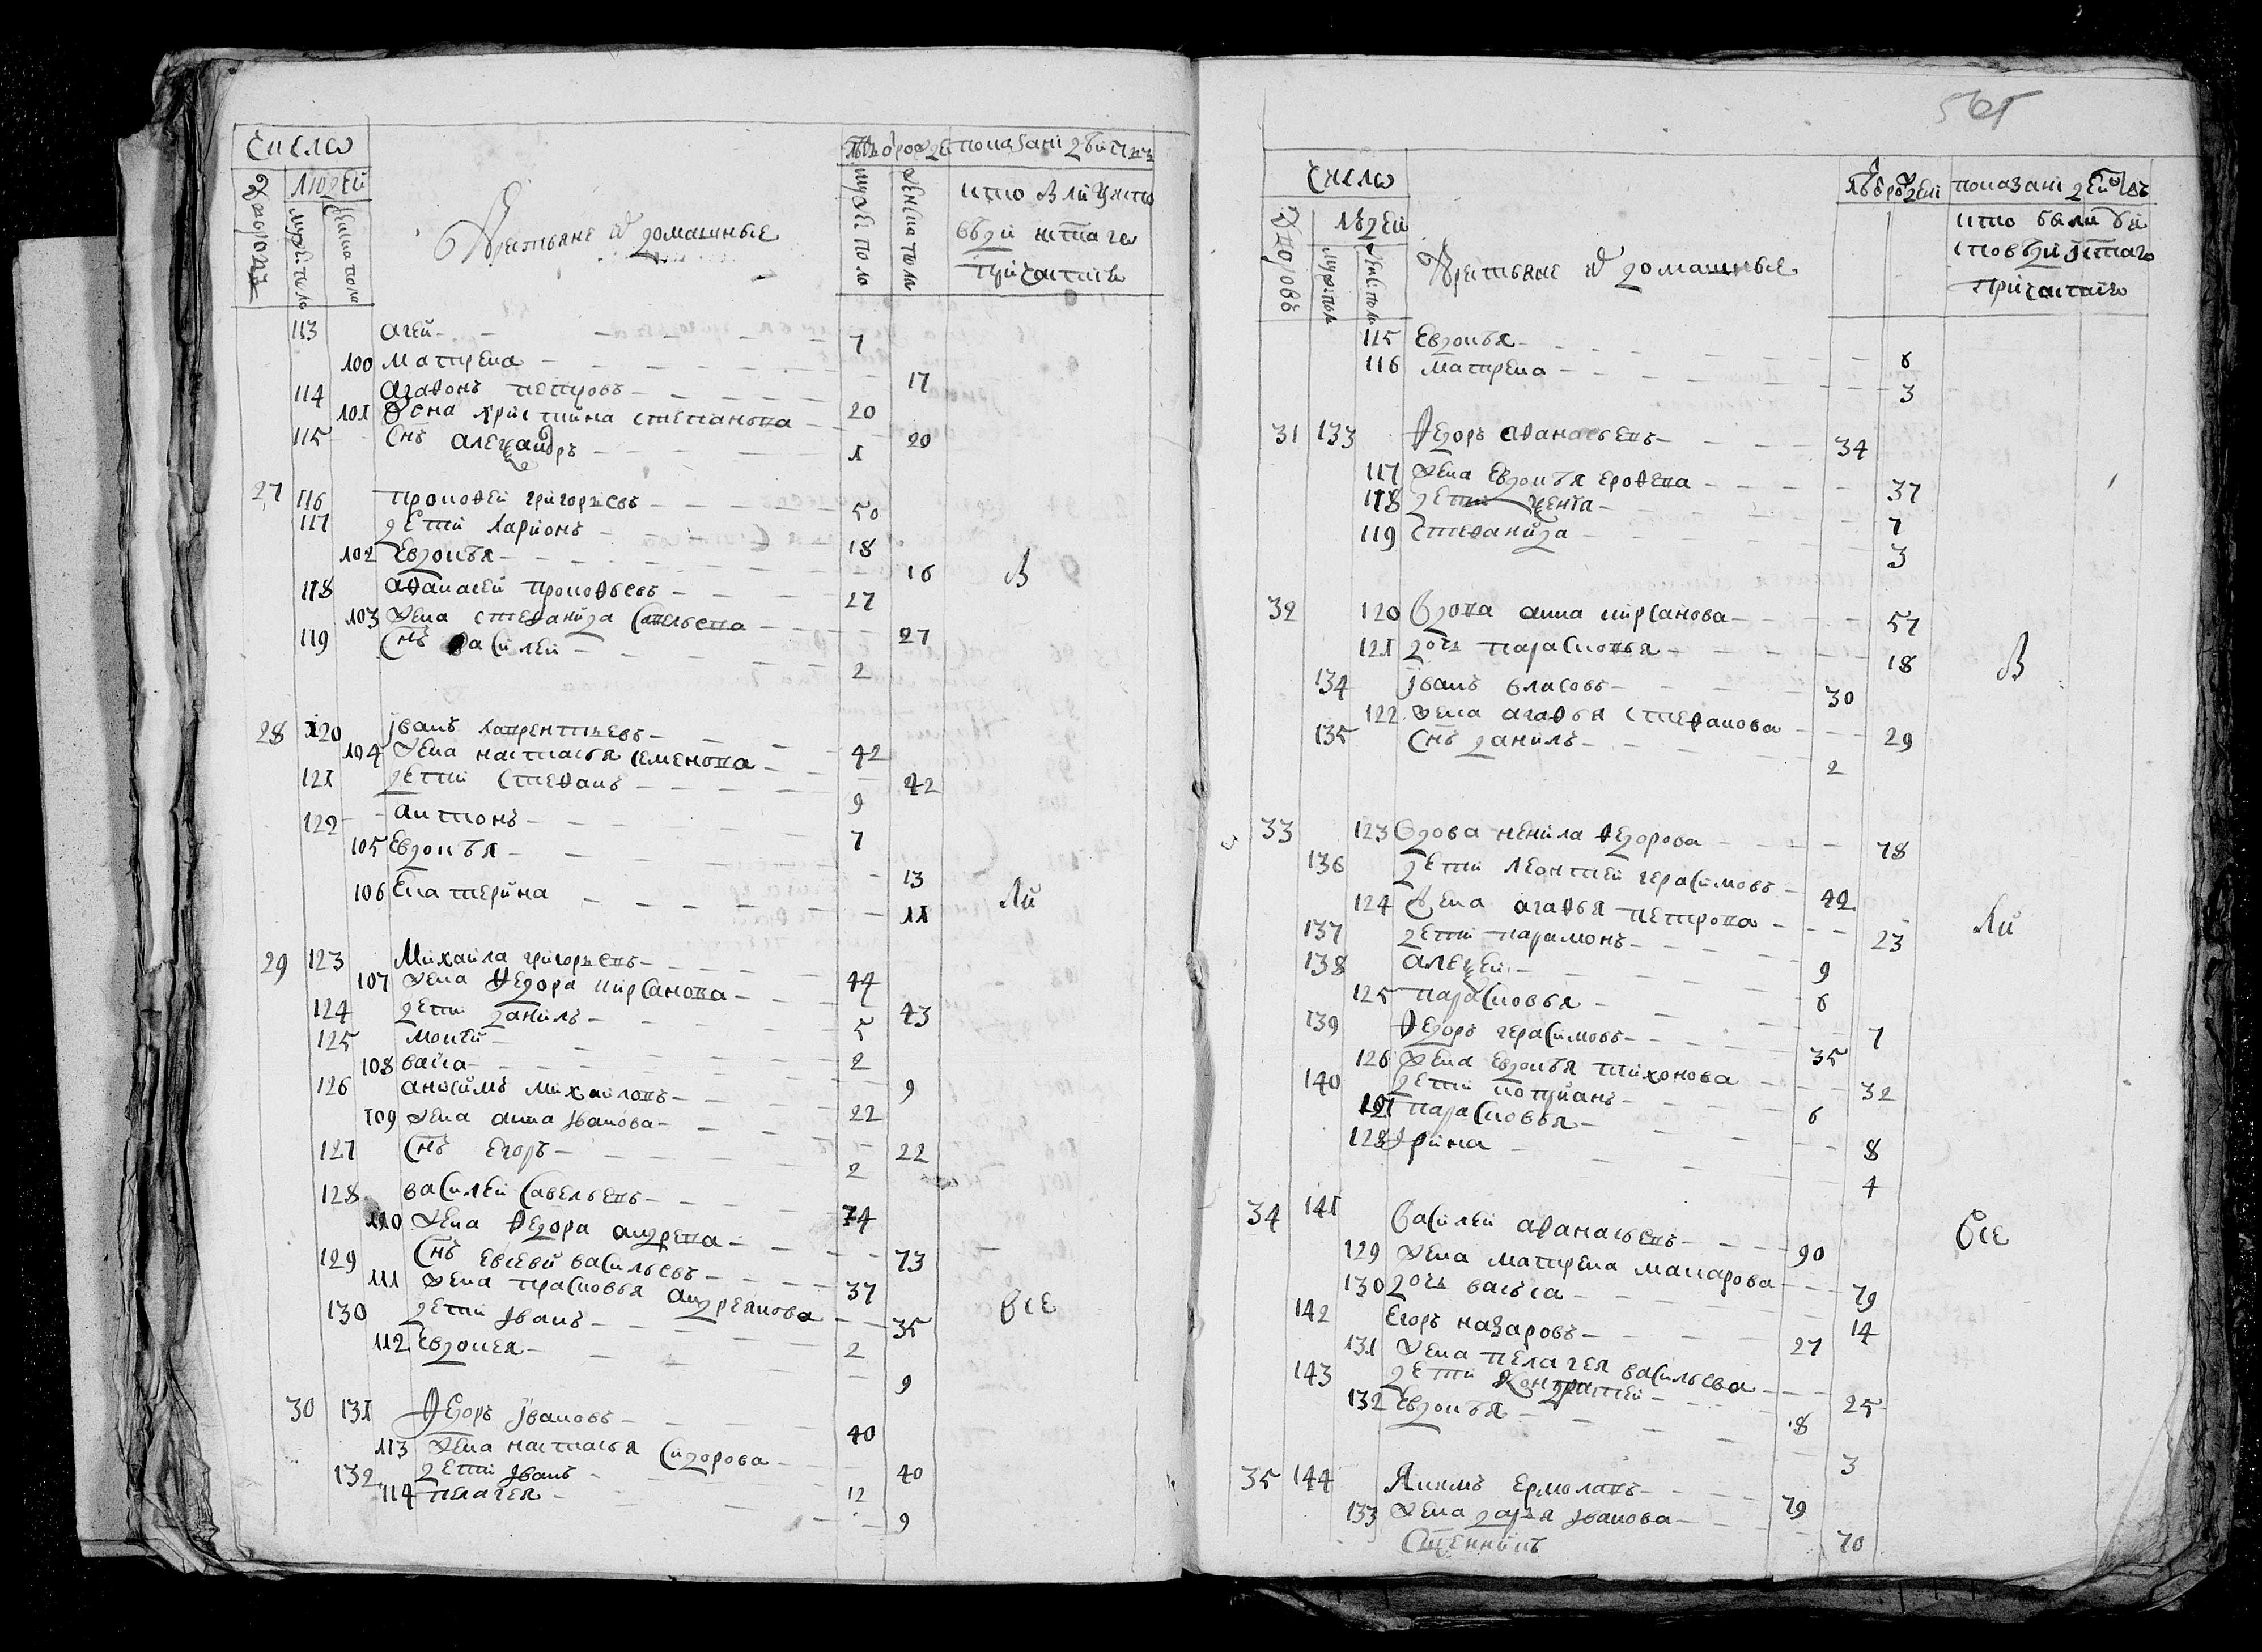 Число
Людей
Дворовъ
мужес: полъ
женска полъ
Крестьяне и домашные
Лѣто рожде
показани действ
мужес полъ
женска полъ
кто былъ у исто
вѣди и стаго
причастиѧ
113 агей 7
100 матрена 17
114 агафонъ петровъ 20
101 жена христиина степанова 20
115 снъ алеѯандръ 1
27 116 прокофей григорьевъ 50
117 дети ларионъ 18
102 Евдокья 16
В
118 афанасей прокофьевъ 27
103 жена стефанида савельева 27
119 снъ василей 2
28 120 јванъ лаврентьевъ 42
104 жена настасья семенова 42
121 дети стефанъ 9
122 антонъ 7
105 Евдокья 13
106 Екатерина 11
ли
29 123 Михаила григорьевъ 44
107 жена федора кирсанова 43
124 дети данилъ 5
125 мокей 2
108 васса 9
126 анисимъ михаиловъ 22
109 жена анна јванова 22
127 снъ Егоръ 2
128 василей савельевъ 74
110 жена федора андреева 73
129 снъ евсевей васильевъ 37
111 жена прасковья андреянова 35
все
130 дети јванъ 2
112 Евдокея 9
30 131 Федоръ јвановъ 40
113 жена настасья сидорова 40
132 дети јванъ 12
114 пелагея 9
565
Число
Людей
Дворовъ
муж: полъ
женс: полъ
Крестьяне и домашные
Лѣто рождей
показани действъ
кто были
исповѣди и стаго
причастию
115 Евдокья 6
116 матрена 3
31 133 Федоръ афанасьевъ 34
117 жена Евдокья ерофева 37
118 дети ѯения 7
119 стефанида 3
32 120 вдова анна кирсанова 57
121 дочь парасковья 18
В
134 јванъ власовъ 30
122 жена агафья стефанова 29
135 снъ данилъ 2
33 123 вдова ненила федорова 78
136 дети леонтей герасимовъ 42
124 жена агафья петрова 23
ли
137 дети парамонъ 9
138 алеѯей 6
125 парасковья 7
139 Федоръ герасимовъ 35
126 жена Евдокья тихонова 32
140 дети куприанъ 6
127 парасковья 8
128 Ирина 4
34 141 василей афанасьевъ 90
все
129 жена матрена макарова 79
130 дочь васъса 14
142 Егоръ назаровъ 27
131 жена пелагея васильева 25
143 дети Кондратей 8
132 Евдокья 3
35 144 Якимъ Ермолавъ 79
133 жена дарья јванова 70
Сщенникъ